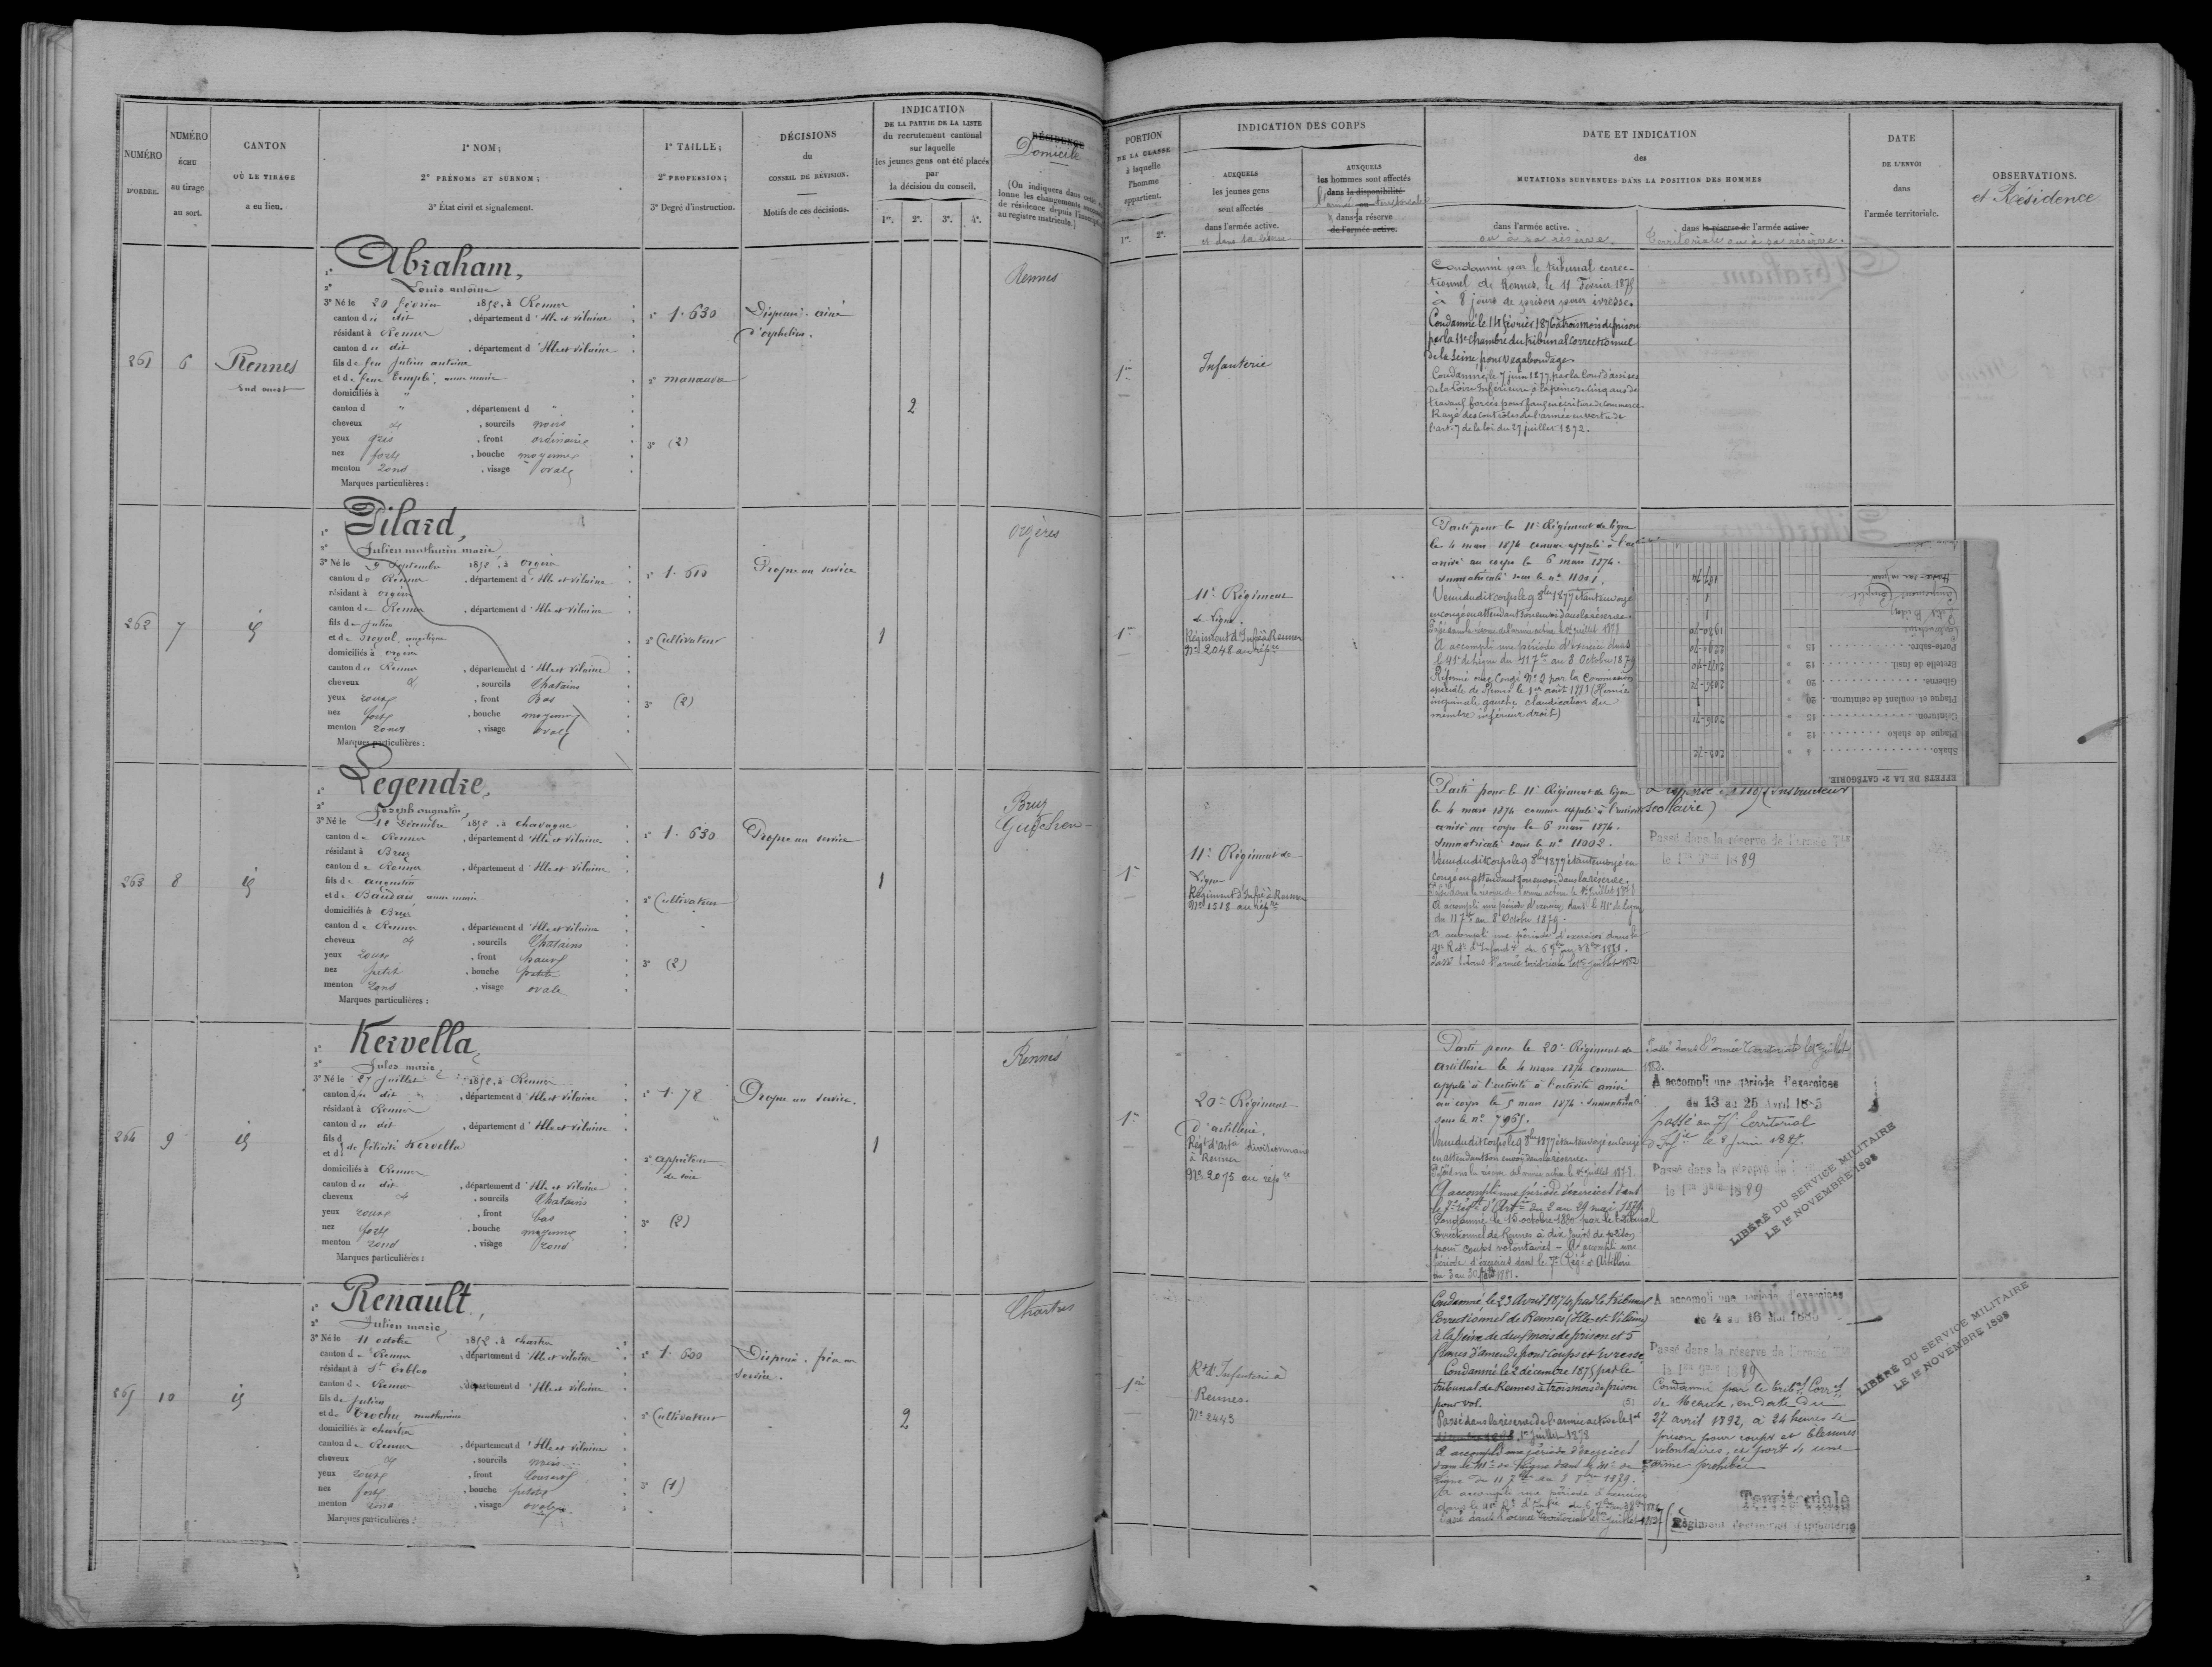 NUMÉRO
D'ORDRE.
NUMÉRO
ÉCHU
au tirage
au sort.
CANTON
OÙ LE TIRAGE
a eu lieu.
1° NOM;
2° PRÉNOMS ET SURNOM;
3° État civil et signalement.
1° TAILLE;
2° PROFESSION;
3° Degré d'instruction.
DÉCISIONS
du
CONSEIL DE RÉVISION.
Motifs de ces décisions.
INDICATION
DE LA PARTIE DE LA LISTE
du recrutement cantonal
sur laquelle
les jeunes gens ont été placés
par
la décision du conseil.
1re. 2e. 3e. 4e.
RÉSIDENCE
Domicile
(On indiquera dans cette
lonne les changements
de résidence depuis l'inscription
au registre matricule.)
PORTION
DE LA CLASSE
à laquelle
l'homme
appartient.
1re. 2e.
INDICATION DES CORPS
AUXQUELS
les jeunes gens
sont affectés
dans l'armée active.
et dans la réserve
AUXQUELS
les hommes sont affectés
dans la disponibilité
armée ou territoriale
dans la réserve
de l'armée active.
DATE ET INDICATION
des
MUTATIONS SURVENUES DANS LA POSITION DES HOMMES
dans l'armée active.
ou à sa réserve.
dans la réserve de l'armée active.
Territoriale ou à sa réserve.
DATE
DE L'ENVOI
dans
l'armée territoriale.
OBSERVATIONS.
et Résidence
261
6
Rennes
Sud ouest
1° Abraham,
2° Louis antoine
3° Né le 29 février 1852, à Rennes
canton du dit, département d'Ille et Vilaine
résidant à Rennes
canton du dit, département d'Ille et Vilaine
fils de feu Julien antoine
et de feue Templé, anne marie
domiciliés à "
canton d ", département d "
cheveux &, sourcils noirs
yeux gris, front ordinaire
nez fort, bouche moyenne
menton rond, visage ovale
Marques particulières :
1° 1.630
2° manœuvre
3° (2)
Dispensé. aîné
d'orphelins.
2
Rennes
1re
Infanterie
Condamné par le tribunal correc-
tionnel de Rennes, le 11 Février 1875
à 8 jours de prison pour ivresse.
Condamné le 14 février 1876 à trois mois de prison
par la 11e Chambre du tribunal Correctionnel
de la Seine pour vagabondage.
Condamné, le 7 juin 1877, par la Cour d'assises
de la Loire Inférieure à la peine de cinq ans de
travaux forcés pour faux en écriture de commerce
Rayé des contrôles de l'armée en vertu de
l'art. 7 de la loi du 27 juillet 1872.
262
7
id
1° Pilard,
2° Julien mathurin marie
3° Né le 9 Septembre 1852, à Orgères
canton de Rennes, département d'Ille et Vilaine
résidant à Orgères
canton de Rennes, département d'Ille et Vilaine
fils de Julien
et de Noyal, angélique
domiciliés à Orgères
canton de Rennes, département d'Ille et Vilaine
cheveux &, sourcils Chatains
yeux roux, front Bas
nez fort, bouche moyenne
menton rond, visage ovale
Marques particulières :
1° 1.610
2° Cultivateur
3° (2)
Propre au service
1
Orgères
1re
11e Régiment
de Ligne.
Régiment d'Inf. à Rennes
No 2048 au rép.re
Parti pour le 11e Régiment de ligne
le 4 mars 1874 comme appelé à l'ac
arrivé au corps le 6 mars 1874.
Immatriculé sous le no 11001.
Venu dudit corps le 9 8bre 1877 étant envoyé
en congé en attendant son envoi dans la réserve.
A accompli une période d'exercice dans
le 41e de ligne du 11 7bre au 8 Octobre 1879
Réformé avec Congé No 2 par la Commission
spéciale de Rennes le 1er août 1881 (Hernie
inguinale gauche, claudication du
membre inférieur droit)
EFFETS DE LA 2e CATÉGORIE.
Shako. 4 203-72
Plaque de shako 12
Ceinturon. 15
Plaque et coulant de ceinturon. 20 1
Giberne. 20
Bretelle de fusil. 12
Porte-sabre. 15
263
8
id
1° Legendre,
2° Joseph augustin
3° Né le 12 Décembre 1852, à Chavagne
canton de Rennes, département d'Ille et Vilaine
résidant à Bruz
canton de Rennes, département d'Ille et Vilaine
fils de augustin
et de Baudais, anne marie
domiciliés à Bruz
canton de Rennes, département d'Ille et Vilaine
cheveux &, sourcils Chatains
yeux roux, front haut
nez petit, bouche petite
menton rond, visage ovale
Marques particulières :
1° 1.630
2° Cultivateur
3° (2)
Propre au service
1
Bruz
Guichen
1re
11e Régiment de
Ligne
Régiment d'Inf. à Rennes
No 1518 au rép.re
Parti pour le 11e Régiment de ligne
le 4 mars 1874 comme appelé à l'activité
arrivé au corps le 6 mars 1874.
Immatriculé sous le no 11002.
Venu dudit corps le 9 8bre 1877 étant envoyé en
congé en attendant son envoi dans la réserve.
A accompli une période d'exercice dans le 41e de ligne
du 11 7bre au 8 Octobre 1879.
A accompli une période d'exercices dans le
Passé dans l'armée territoriale le 1er juillet 1882
scolaire)
Passé dans la réserve de l'armée Tle
le 1er 9bre 1889
264
9
id
1° Kervella,
2° Jules marie
3° Né le 27 Juillet 1852, à Rennes
canton du dit, département d'Ille et Vilaine
résidant à Rennes
canton du dit, département d'Ille et Vilaine
fils d
et d de félicité Kervella
domiciliés à Rennes
canton du dit, département d'Ille et Vilaine
cheveux &, sourcils Chatains
yeux roux, front bas
nez fort, bouche moyenne
menton rond, visage rond
Marques particulières :
1° 1.72
3° (2)
Propre au service.
1
Rennes
1re
20e Régiment
d'artillerie.
Régt d'art. divisionnaire
à Rennes
No 2075 au rép.re
Parti pour le 20e Régiment de
artillerie le 4 mars 1874 comme
appelé à l'activité à l'activité arrivé
au corps le 5 mars 1874. Immatriculé
sous le no 7965.
Venu dudit corps le 9 8bre 1877 étant envoyé en congé
en attendant son envoi dans la réserve
A accompli une période d'exercices dans
le 7e régt d'Artie du 2 au 29 mai 1879.
Condamné le 16 octobre 1880 par le tribunal
Correctionnel de Rennes à dix jours de prison
pour coups volontaires - A accompli une
période d'exercices dans le 7e Régt d'Artillerie
Passé dans l'armée Territoriale le 1er juillet
1882.
A accompli une période d'exercices
du 13 au 25 Avril 1885
Passé dans la réserve de l'
le 1er 9bre 1889
LIBÉRÉ DU SERVICE MILITAIRE
LE 1er NOVEMBRE 1898
265
10
id
1° Renault,
2° Julien marie
3° Né le 11 octobre 1852, à Chartres
canton de Rennes, département d'Ille et Vilaine
résidant à St Erblon
canton de Rennes, département d'Ille et Vilaine
fils de Julien
et de Trochu, mathurine
domiciliés à Chartres
canton de Rennes, département d'Ille et Vilaine
cheveux &, sourcils noirs
yeux roux, front couvert
nez fort, bouche petite
menton rond, visage ovale
Marques particulières :
1° 1.600
2° Cultivateur
3° (1)
Dispensé. frère au
service.
2
Chartres
1re
Rt d'Infanterie à
Rennes.
No 2443
Condamné le 23 Avril 1874 par le tribunal
Correctionnel de Rennes (Ille-et-Vilaine)
à la peine de deux mois de prison et 5
francs d'amende pour Coups et Ivresse
Condamné le 2 décembre 1875 par le
tribunal de Rennes à trois mois de prison
pour vol.
Passé dans la réserve de l'armée active le 1er
1er Juillet 1878
A accompli une période d'exercices
ligne du 11 7bre au 8 8bre 1879.
A accompli une période d'exercices
Passé dans l'armée territoriale le 1er juillet 1882
A accompli une période d'exercices
du 4 au 16 Mai 1886
Passé dans la réserve de l'armée Tle
le 1er 9bre 1889
Condamné par le tribal Correl
de Meaux, en date du
27 avril 1892, à 24 heures de
prison pour coups et blessures
volontaires, et port de une
arme prohibée
Territoriale
Régiment territorial d'infanterie
LIBÉRÉ DU SERVICE MILITAIRE
LE 1er NOVEMBRE 1898